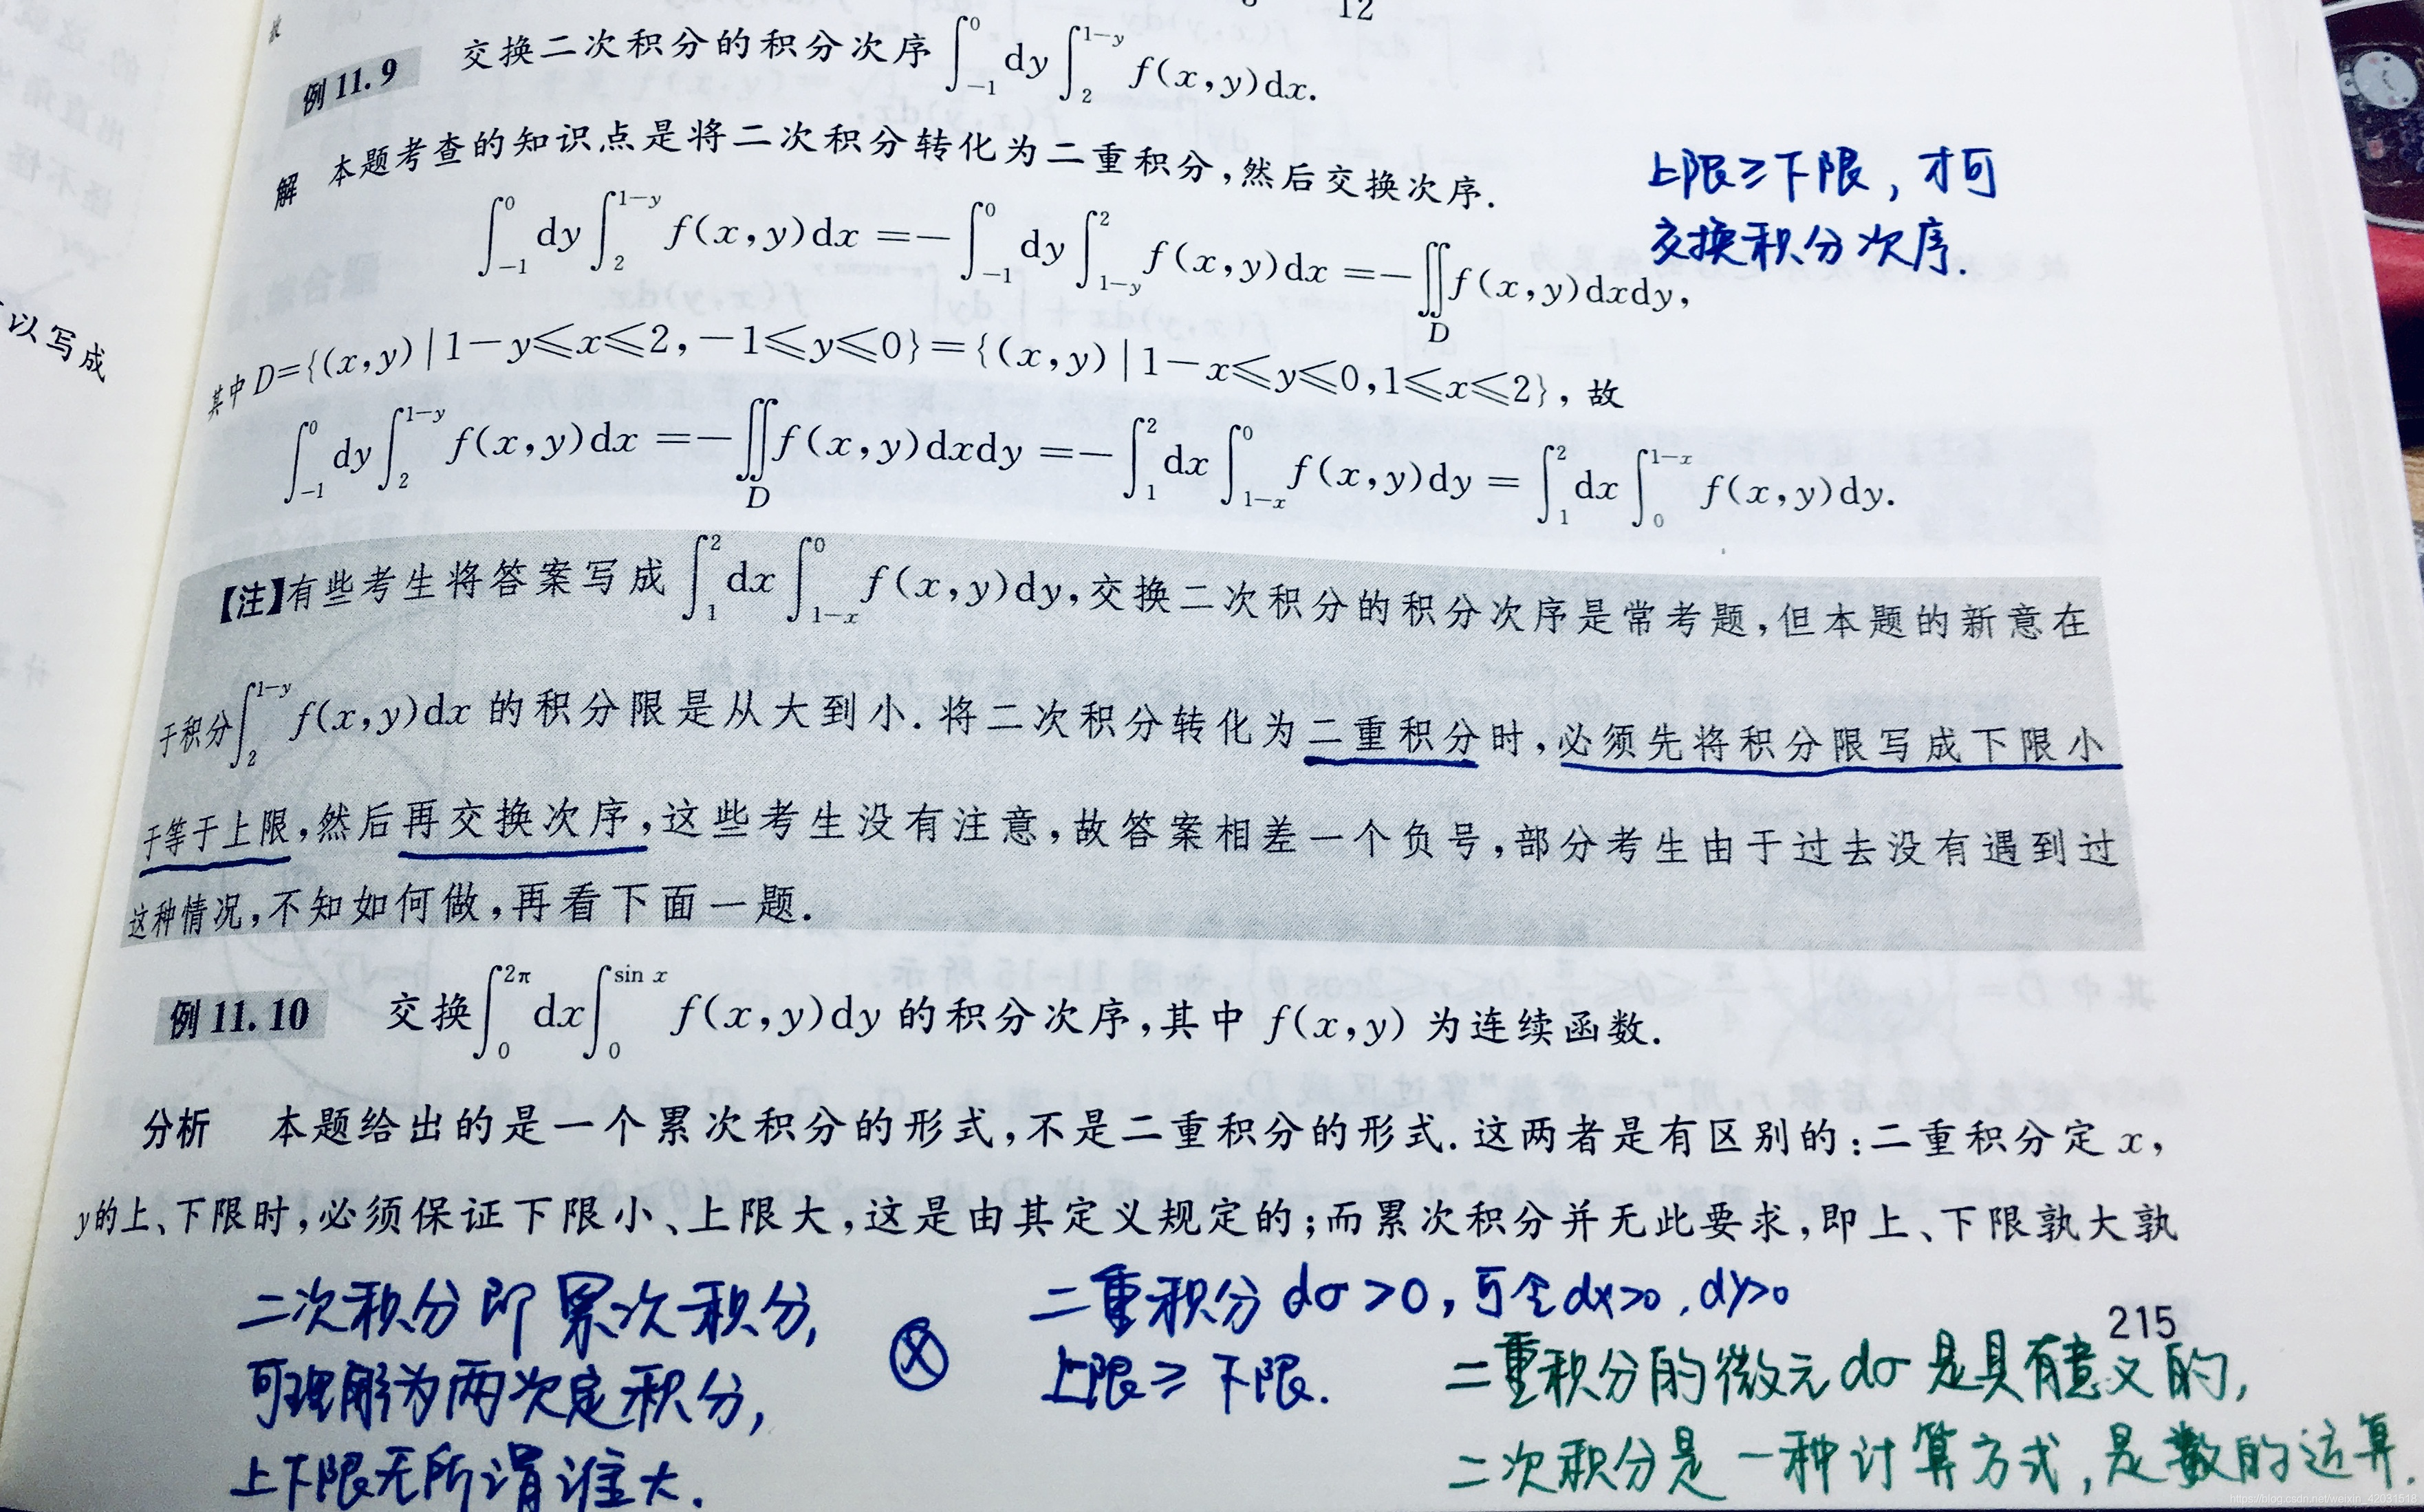 12
例 11.9 交换二次积分的积分次序 ∫_{-1}^{0} dy ∫_{2}^{1-y} f(x,y)dx.
解 本题考查的知识点是将二次积分转化为二重积分,然后交换次序.
上限≥下限,才可
交换积分次序.
∫_{-1}^{0} dy ∫_{2}^{1-y} f(x,y)dx = - ∫_{-1}^{0} dy ∫_{1-y}^{2} f(x,y)dx = - ∬_{D} f(x,y)dxdy,
以写成
其中 D={(x,y)|1-y≤x≤2,-1≤y≤0}={(x,y)|1-x≤y≤0,1≤x≤2},故
∫_{-1}^{0} dy ∫_{2}^{1-y} f(x,y)dx = - ∬_{D} f(x,y)dxdy = - ∫_{1}^{2} dx ∫_{1-x}^{0} f(x,y)dy = ∫_{1}^{2} dx ∫_{0}^{1-x} f(x,y)dy.
【注】有些考生将答案写成 ∫_{1}^{2} dx ∫_{1-x}^{0} f(x,y)dy,交换二次积分的积分次序是常考题,但本题的新意在
于积分 ∫_{2}^{1-y} f(x,y)dx 的积分限是从大到小.将二次积分转化为二重积分时,必须先将积分限写成下限小
于等于上限,然后再交换次序,这些考生没有注意,故答案相差一个负号,部分考生由于过去没有遇到过
这种情况,不知如何做,再看下面一题.
例 11.10 交换 ∫_{0}^{2π} dx ∫_{0}^{sin x} f(x,y)dy 的积分次序,其中 f(x,y) 为连续函数.
分析 本题给出的是一个累次积分的形式,不是二重积分的形式.这两者是有区别的:二重积分定 x,
y的上、下限时,必须保证下限小、上限大,这是由其定义规定的;而累次积分并无此要求,即上、下限孰大孰
215
二次积分即累次积分,
可理解为两次定积分,
上下限无所谓谁大.
二重积分 dσ>0,可令dx>0,dy>0
上限≥下限.
二重积分的微元dσ是具有意义的,
二次积分是一种计算方式,是数的运算.
https://blog.csdn.net/weixin_42031518